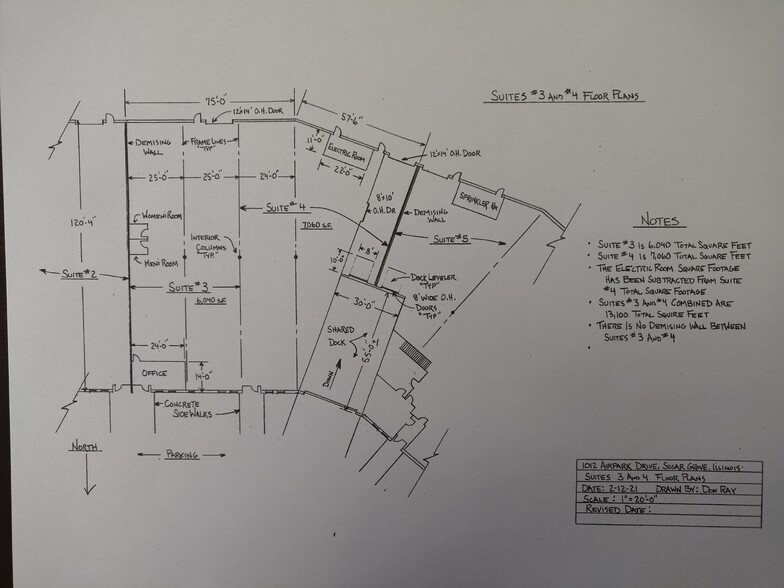 SUITES #3 AND #4 FLOOR PLANS
75'-0"
57'-6"
12'x14' O.H. DOOR
DEMISING
WALL
FRAME LINES
"TYP"
11'-0"
ELECTRIC ROOM
22'-0"
12'x14' O.H. DOOR
25'-0"
25'-0"
24'-0"
8'x10'
O.H. DR
SPRINKLER RM
SUITE #4
7,060 S.F.
DEMISING
WALL
SUITE #5
120'-4"
WOMENS ROOM
MENS ROOM
INTERIOR
COLUMNS
"TYP."
8'
10'-0"
SUITE #2
SUITE #3
6,040 S.F.
DOCK LEVELER
"TYP"
8' WIDE O.H.
DOORS
"TYP"
30'-0"
SHARED
DOCK
55'-0±
DOWN
24'-0"
OFFICE
14'-0"
CONCRETE
SIDE WALKS
NORTH
PARKING
NOTES
• SUITE #3 IS 6,040 TOTAL SQUARE FEET
• SUITE #4 IS 7,060 TOTAL SQUARE FEET
• THE ELECTRIC ROOM SQUARE FOOTAGE
HAS BEEN SUBTRACTED FROM SUITE
#4 TOTAL SQUARE FOOTAGE
• SUITES #3 AND #4 COMBINED ARE
13,100 TOTAL SQUIRE FEET
• THERE IS NO DEMISING WALL BETWEEN
SUITES #3 AND #4
•
1012 AIRPARK DRIVE, SUGAR GROVE, ILLINOIS
SUITES 3 AND 4 FLOOR PLANS
DATE: 2-12-21 DRAWN BY: DON RAY
SCALE: 1"=20'-0"
REVISED DATE: